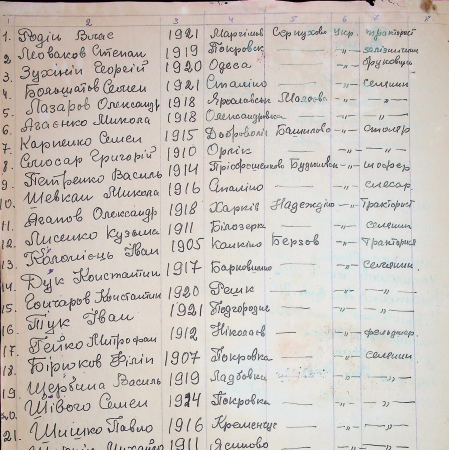 1 2 3 4 5 6 7 8
1. Родін Влас 1921 Маргілов Серпухово Укр. тракторіст
2 Леоваков Степан 1919 Покровск — -"- залізничник
3. Зухінін Георгій 1920 Одеса — -"-
4. Большатов Семен 1921 Сталіно — -"- селянин
5. Лазаров Олександр 1918 Ярославськ — -"- -"-
6. Агаєнко Микола 1918 Олександрівка — -"- -"-
7. Карпенко Семен 1915 Доброволіє Башилово -"- столяр
8. Слюсар Григорій 1910 Орлік — -"- -"-
9. Петренко Василь 1914 -"- шофер
10. Шевкай Микола 1916 Сталіно — -"- слесар
11. Агапов Олександр 1918 Харків Надеждіно -"- Тракторіст
12. Лисенко Кузьма 1911 Білозерка — -"- селянин
13. Коломієць Іван 1905 Калкіно Берзов -"-
14. Дук Константин 1917 — -"- селянин
15. Гончаров Константин 1920 Решк — -"- -"-
16. Тук Іван 1921 Подгородне — -"- -"-
17. Гейко Митрофан 1912 Ніколаєв — -"- фельдшер
18. Бірюков Філіп 1907 Покровка — -"- селянин
19. Щербина Василь 1919 Ладбовка — -"- -"-
20. Шівого Семен 1924 Покровка — -"- -"-
21. Шишко Павло 1916 Кременчуг — -"- -"-
1911 Ясиново — -"- -"-